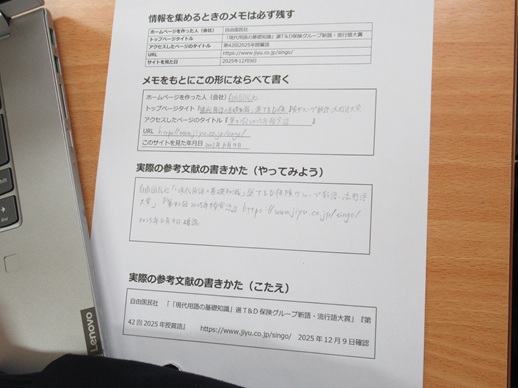 情報を集めるときのメモは必ず残す
ホームページを作った人（会社） 自由国民社
トップページタイトル 「現代用語の基礎知識」選T&D保険グループ新語・流行語大賞
アクセスしたページのタイトル 第42回2025年授賞語
URL https://www.jiyu.co.jp/singo/
サイトを見た日 2025年12月9日
メモをもとにこの形にならべて書く
ホームページを作った人（会社） 自由国民社
トップページタイトル 『現代用語の基礎知識』選T&D保険
アクセスしたページのタイトル
URL https://www.jiyu.co.jp/singo/
このサイトを見た年月日
実際の参考文献の書きかた（やってみよう）
自由国民社「現代用語の基礎知識」選T&D保険グループ新語・流行語
大賞』『第42回2025年授賞語』https://www.jiyu.co.jp/singo/
2025年12月9日確認
実際の参考文献の書きかた（こたえ）
自由国民社 「「現代用語の基礎知識」選T&D保険グループ新語・流行語大賞」『第
42回2025年授賞語』 https://www.jiyu.co.jp/singo/ 2025年12月9日確認
Lenovo